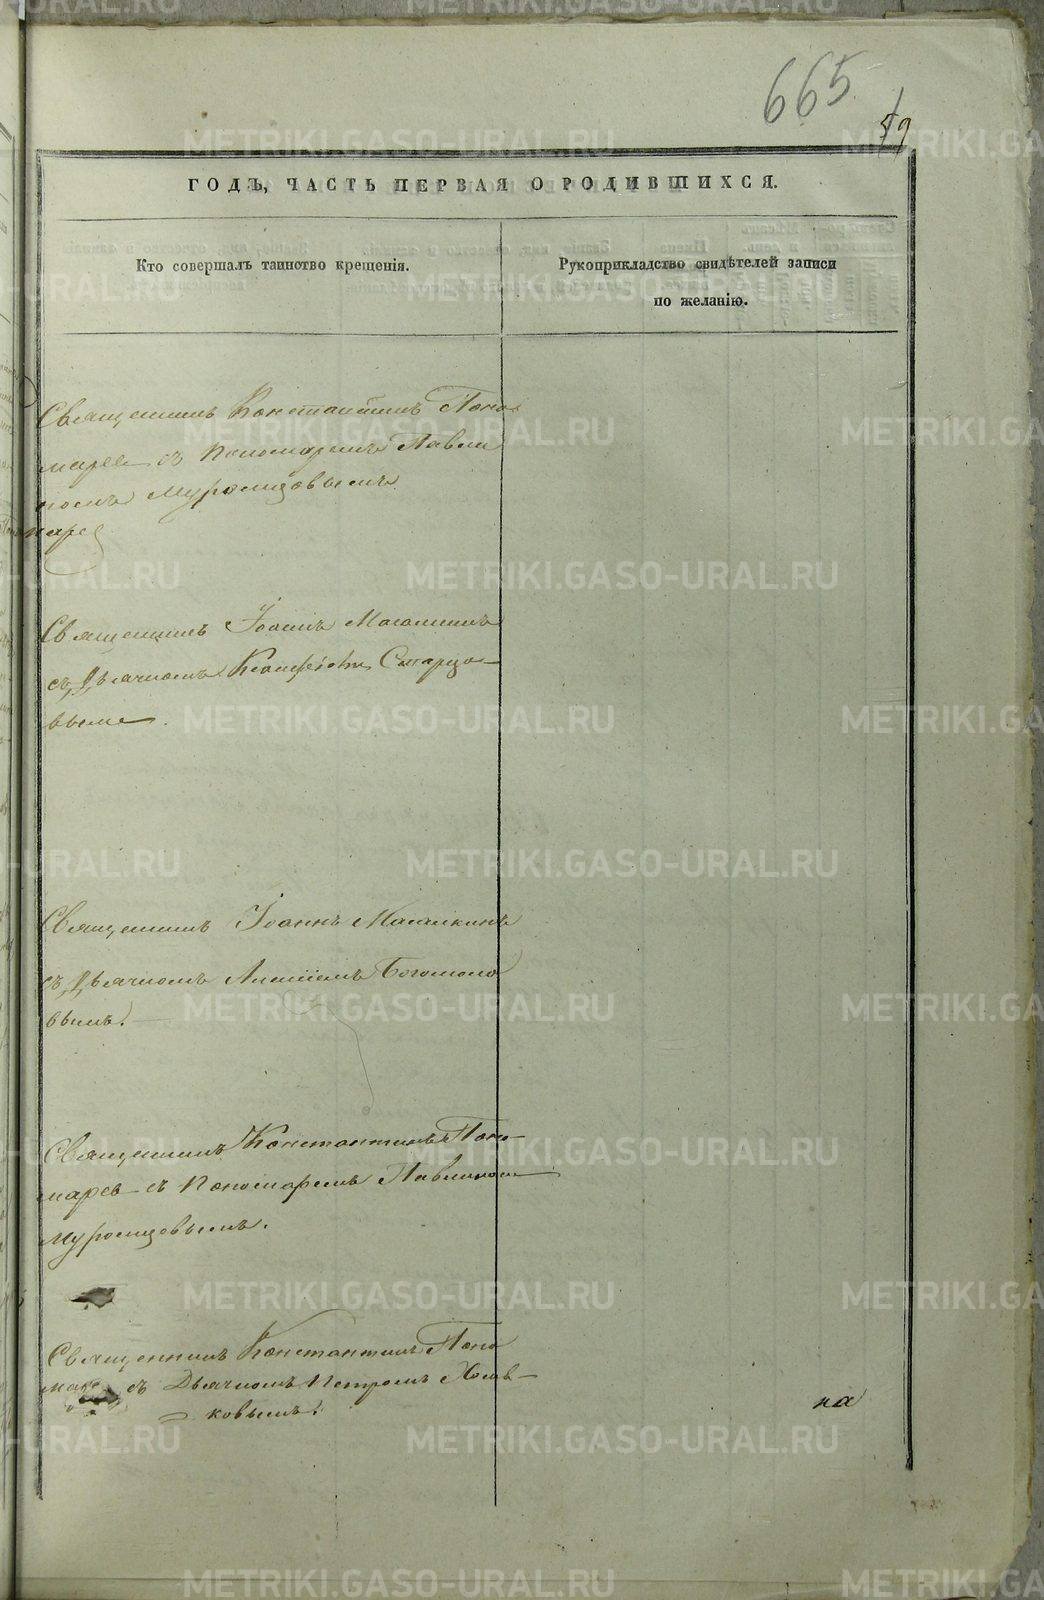 665
59
ГОДЪ, ЧАСТЬ ПЕРВАЯ О РОДИВШИХСЯ.
Кто совершалъ таинство крещенія.
Рукоприкладство свидѣтелей записи
по желанію.
Священникъ Константинъ Поно
марев съ Пономаремъ Павли
номъ Муромцовымъ
Священникъ Іоаннъ Масалкинъ
съ Дьячкомъ
вымъ.
Священникъ Іоаннъ Масалкинъ
съ Дьячкомъ Алексіемъ Богомоло
вымъ.
Священникъ Константинъ Поно-
марев съ Пономаремъ Павлином
Муромцовымъ.
Священникъ Константинъ Поно
съ Дьячкомъ Петромъ
ковымъ.
на
METRIKI.GASO-URAL.RU